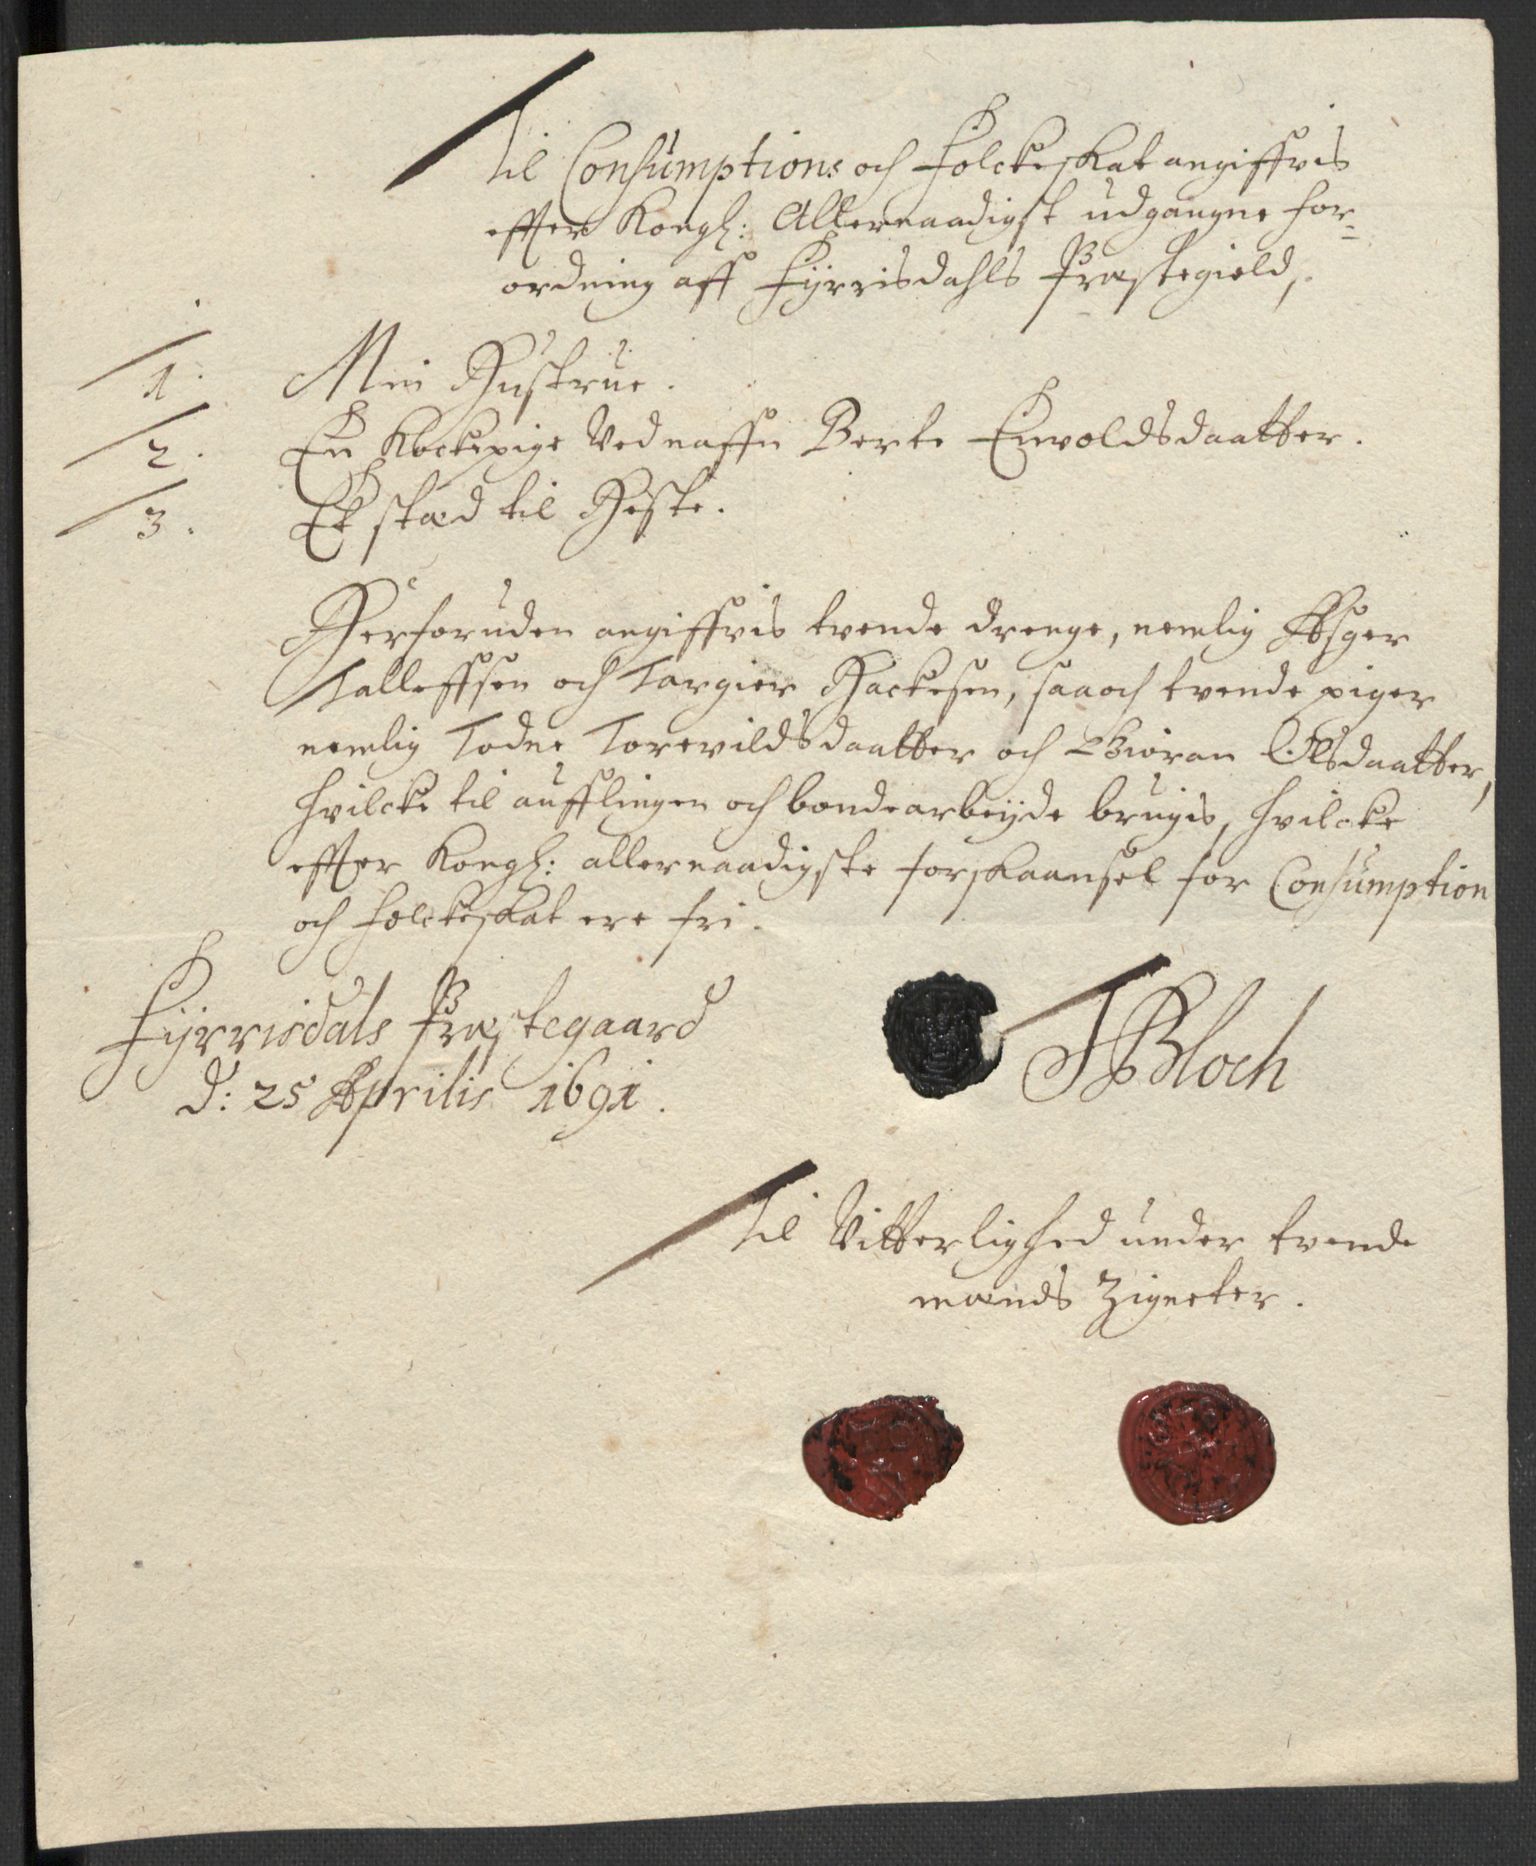 Til Consumptions och Folckeskat angiffvis
effter Kongl: Allernaadigst udgangne for=
ordning aff Fÿrrisdahls Præstegield,
1. Min Hustrue.
2. En Kockepige Ved naffn Berte Enwoldsdaatter.
3. Et stæd til Heste.
Herforuden angiffvis tvende drenge, nemlig Asger
Talleffsen och Targier Hackesen, saa och tvende piger
nemlig Todne Torevildsdaatter och Giøran Olsdaatter,
hvilcke til aufflingen och bondearbeÿde brugis, hvilcke
effter Kongl: allernaadigste forskaansel for Consumption
och folckeskat ere fri.
Fÿrrisdals Præstegaard
d: 25 Aprilis 1691.
JBloch
Til Vitterlighed under tvende
mænds Zigneter.